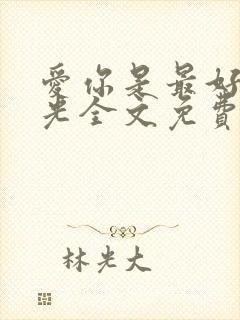 愛你是最好
光全文免費
林光大